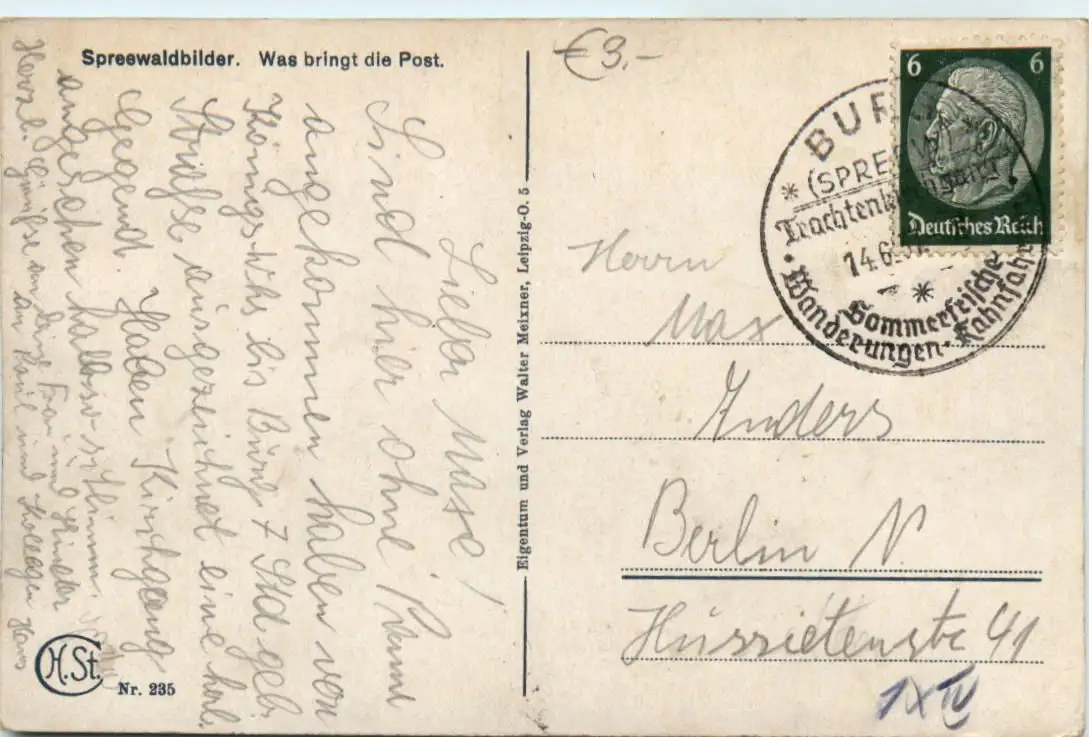 Spreewaldbilder. Was bringt die Post.
€3.-
Lieber Maxe!
Sind hier ohne
angekommen haben von
Königs-Whs bis Burg 7 Std gebr.
Strasse ausgezeichnet eine herl.
Gegend. Haben Kirchgang
angesehen
Herzl. Grüsse an deine Frau und Kinder
an Paul und Kollegen Hans
H.St.
Nr. 235
Eigentum und Verlag Walter Meixner, Leipzig-O. 5
6 6
Deutsches Reich
BURG
(SPREEW
Trachtenkirchgang
14.6.37
Sommerfrische
Wanderungen · Kahnfahr
Herrn
Max
Enders
Berlin N.
Hussitenstr 41
1x IV